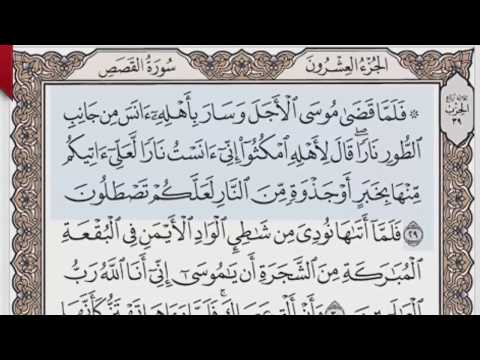 الجزء العشرون
سورة القصص
الحزب
٣٩
۞ فَلَمَّا قَضَىٰ مُوسَى ٱلْأَجَلَ وَسَارَ بِأَهْلِهِۦٓ ءَانَسَ مِن جَانِبِ
ٱلطُّورِ نَارًا ۖ قَالَ لِأَهْلِهِ ٱمْكُثُوٓا۟ إِنِّىٓ ءَانَسْتُ نَارًا لَّعَلِّىٓ ءَاتِيكُم
مِّنْهَا بِخَبَرٍ أَوْ جَذْوَةٍ مِّنَ ٱلنَّارِ لَعَلَّكُمْ تَصْطَلُونَ
٢٩ فَلَمَّآ أَتَىٰهَا نُودِىَ مِن شَٰطِئِ ٱلْوَادِ ٱلْأَيْمَنِ فِى ٱلْبُقْعَةِ
ٱلْمُبَٰرَكَةِ مِنَ ٱلشَّجَرَةِ أَن يَٰمُوسَىٰٓ إِنِّىٓ أَنَا ٱللَّهُ رَبُّ